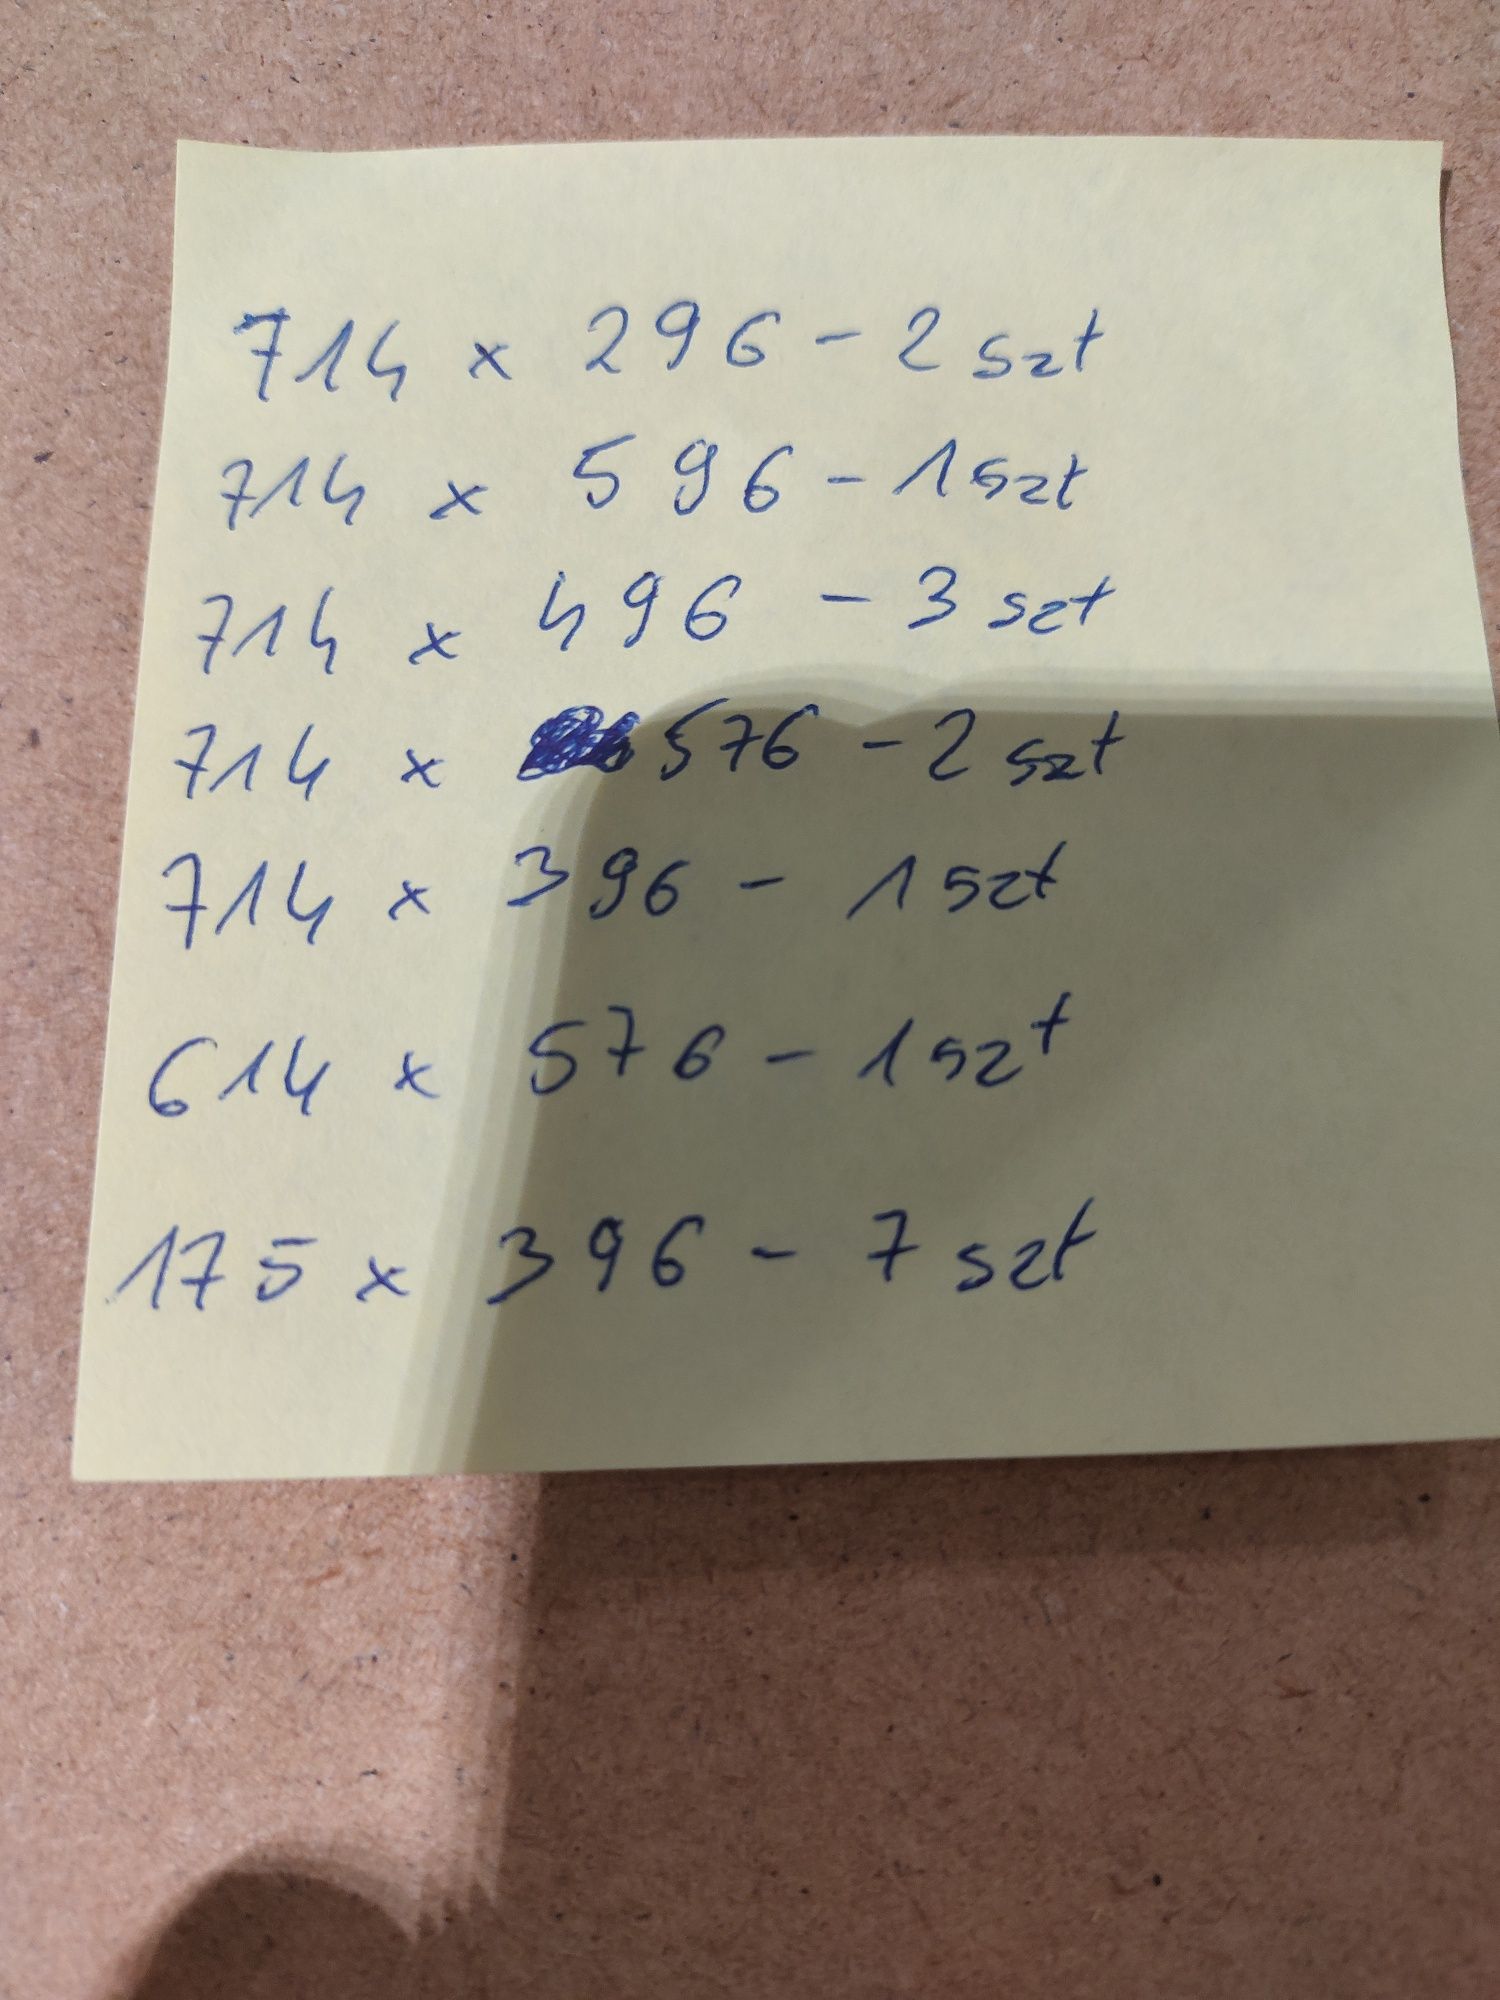 714 x 296 - 2 szt
714 x 596 - 1 szt
714 x 496 - 3 szt
714 x 576 - 2 szt
714 x 396 - 1 szt
614 x 576 - 1 szt
175 x 396 - 7 szt